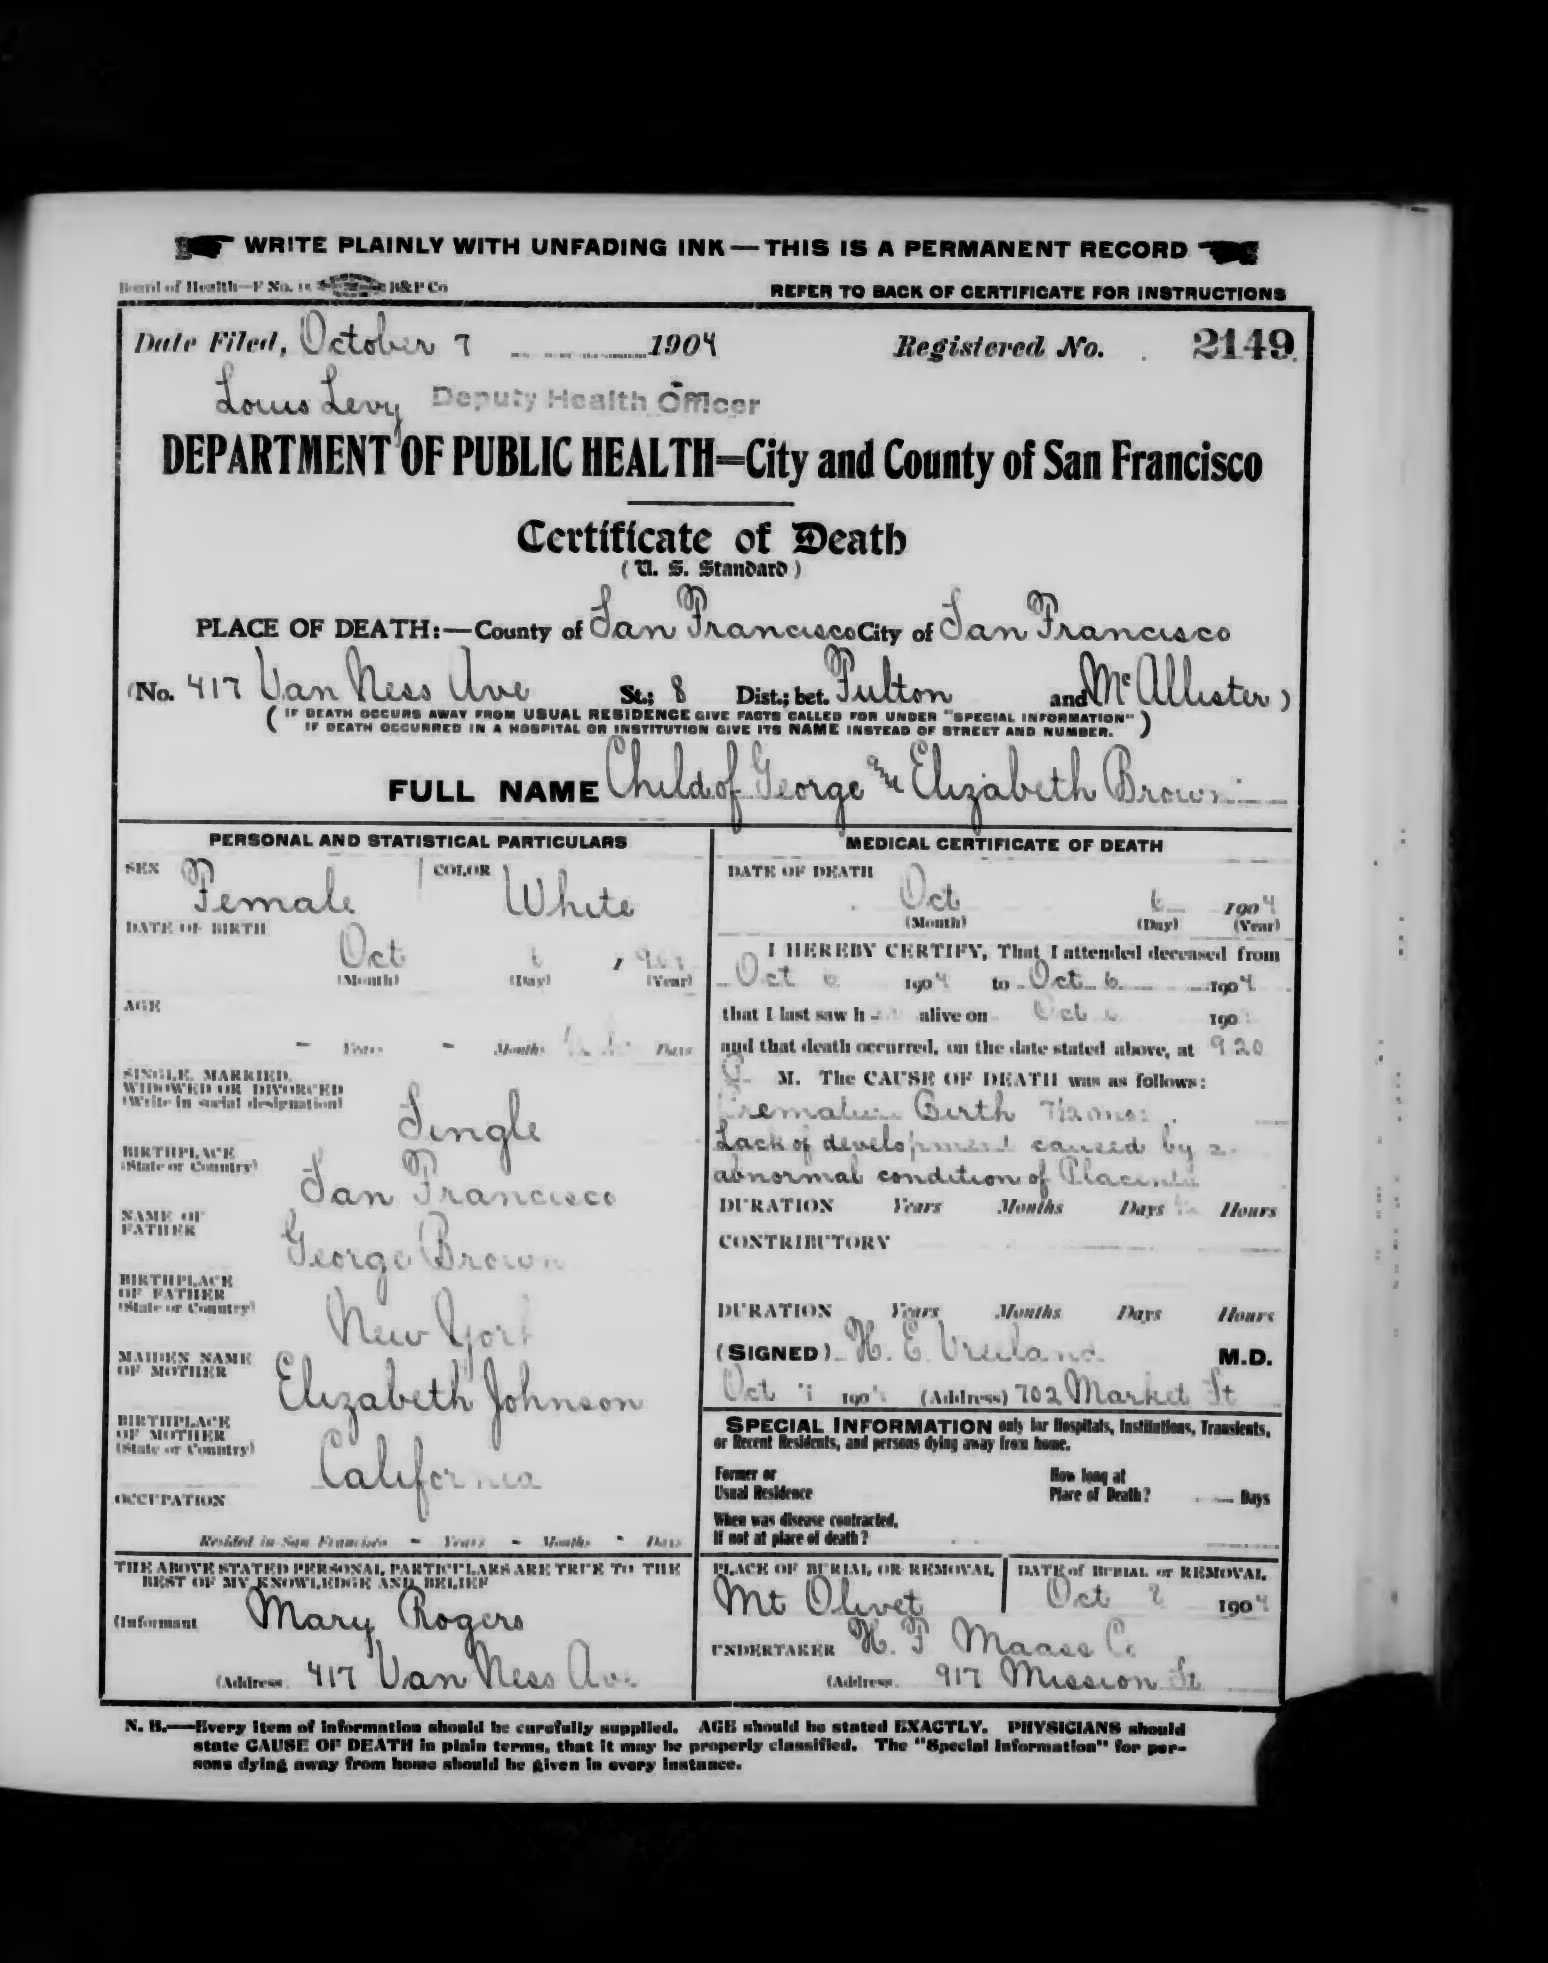 WRITE PLAINLY WITH UNFADING INK — THIS IS A PERMANENT RECORD
Board of Health—F No. B&P Co
REFER TO BACK OF CERTIFICATE FOR INSTRUCTIONS
Date Filed, October 7 1904 Registered No. 2149
Louis Levy Deputy Health Officer
DEPARTMENT OF PUBLIC HEALTH=City and County of San Francisco
Certificate of Death
(U. S. Standard)
PLACE OF DEATH:—County of San Francisco City of San Francisco
(No. 417 Van Ness Ave St.; 8 Dist.; bet. Fulton and McAllister)
(IF DEATH OCCURS AWAY FROM USUAL RESIDENCE GIVE FACTS CALLED FOR UNDER "SPECIAL INFORMATION"
IF DEATH OCCURRED IN A HOSPITAL OR INSTITUTION GIVE ITS NAME INSTEAD OF STREET AND NUMBER.)
FULL NAME Child of George and Elizabeth Brown
PERSONAL AND STATISTICAL PARTICULARS
SEX Female COLOR White
DATE OF BIRTH
Oct 6, 190
(Month) (Day) (Year)
AGE
- Years - Months Days
SINGLE, MARRIED,
WIDOWED OR DIVORCED
(Write in social designation)
Single
BIRTHPLACE
(State or Country)
San Francisco
NAME OF
FATHER
George Brown
BIRTHPLACE
OF FATHER
(State or Country)
New York
MAIDEN NAME
OF MOTHER
Elizabeth Johnson
BIRTHPLACE
OF MOTHER
(State or Country)
California
OCCUPATION
Resided in San Francisco - Years - Months - Days
THE ABOVE STATED PERSONAL PARTICULARS ARE TRUE TO THE
BEST OF MY KNOWLEDGE AND BELIEF
(Informant Mary Rogers
(Address 417 Van Ness Ave
MEDICAL CERTIFICATE OF DEATH
DATE OF DEATH
Oct 6 1904
(Month) (Day) (Year)
I HEREBY CERTIFY, That I attended deceased from
Oct 6 1904 to Oct 6 1904
that I last saw h alive on Oct 6 190
and that death occurred, on the date stated above, at 9 20
P. M. The CAUSE OF DEATH was as follows:
Premature Birth 7½ mos.
Lack of development caused by
abnormal condition of Placenta
DURATION Years Months Days Hours
CONTRIBUTORY
DURATION Years Months Days Hours
(SIGNED) H. E. Vreeland M.D.
Oct 7 190 (Address) 702 Market St
SPECIAL INFORMATION only for Hospitals, Institutions, Transients,
or Recent Residents, and persons dying away from home.
Former or
Usual Residence
How long at
Place of Death? Days
When was disease contracted,
If not at place of death?
PLACE OF BURIAL OR REMOVAL
Mt Olivet
DATE of BURIAL or REMOVAL
Oct 8 1904
UNDERTAKER H. F Maass Co
(Address 917 Mission St
N. B.—Every item of information should be carefully supplied. AGE should be stated EXACTLY. PHYSICIANS should
state CAUSE OF DEATH in plain terms, that it may be properly classified. The "Special Information" for per-
sons dying away from home should be given in every instance.